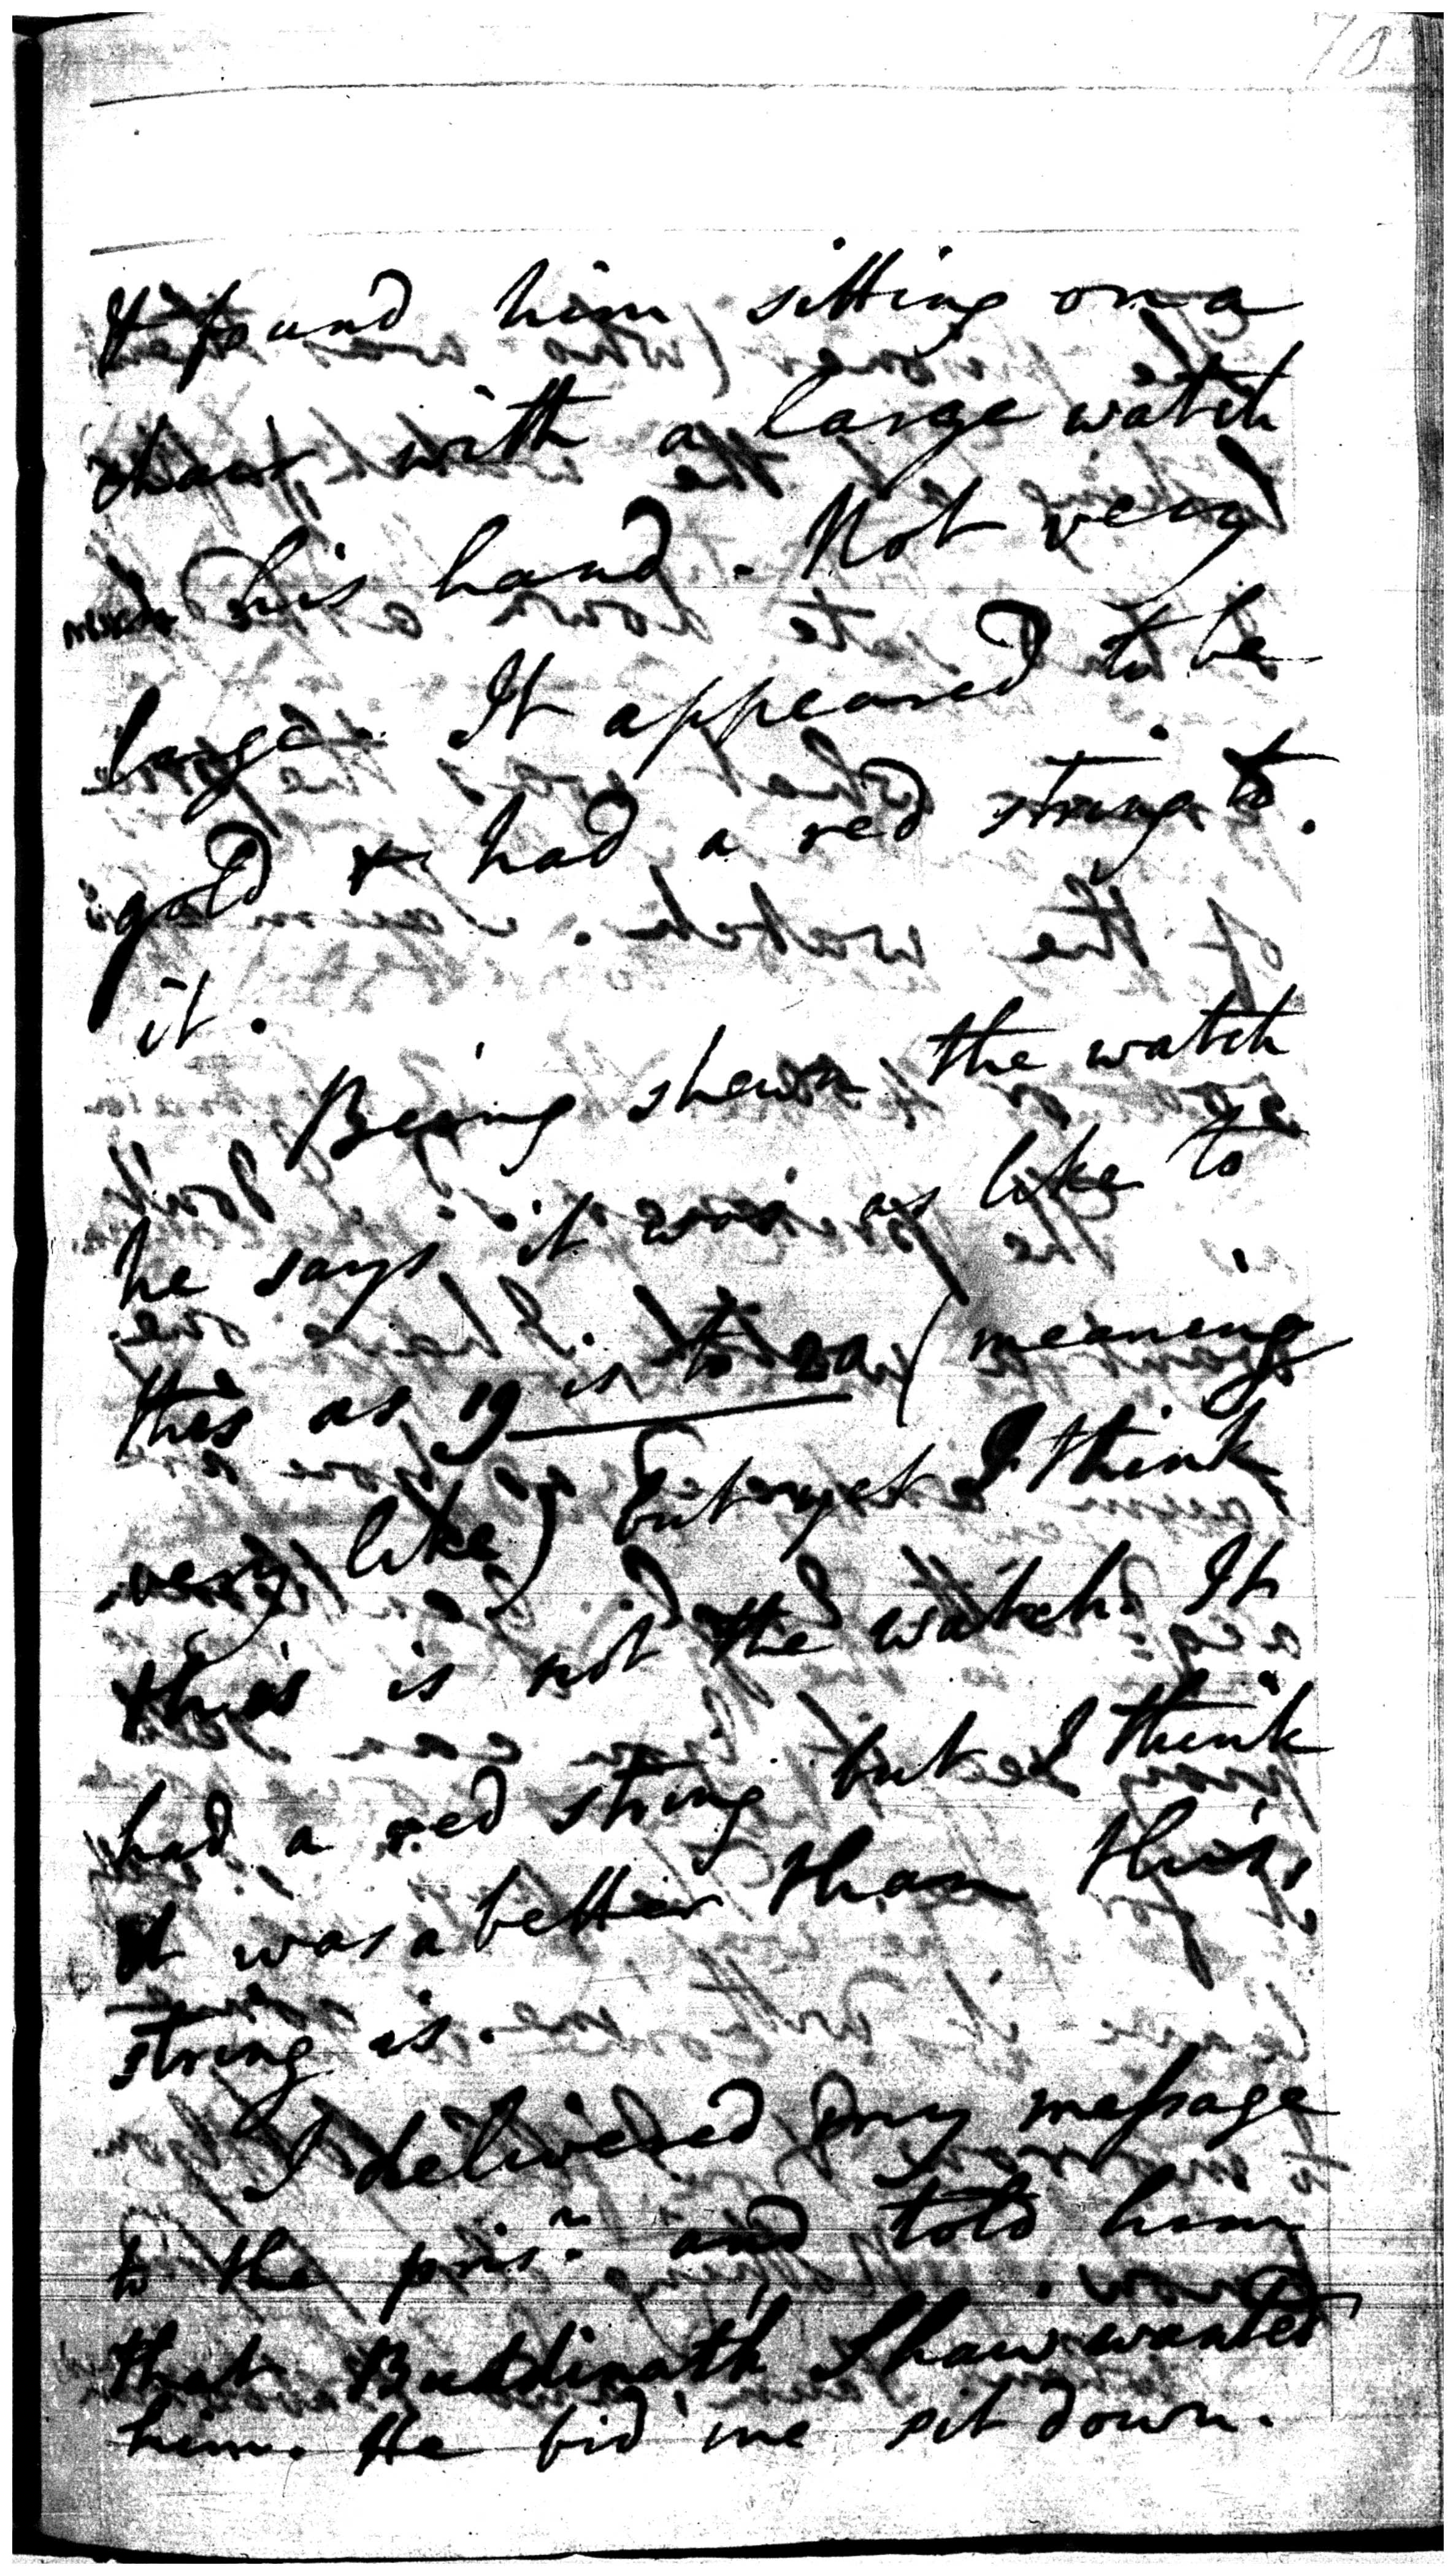 70
& found him sitting on a
chair with a large watch
in his hand. Not very
large. It appeared to be
gold & had a red string to
it.
Being shewn the watch
he says it was as like to
this as 19 is to 20 (meaning
very like) but yet I think
this is not the watch. It
had a red string but I think
it was a better than this
string is.
I delivered my message
to the prisr. and told him
that Buddinath Shaw wanted
him. He bid me sit down.